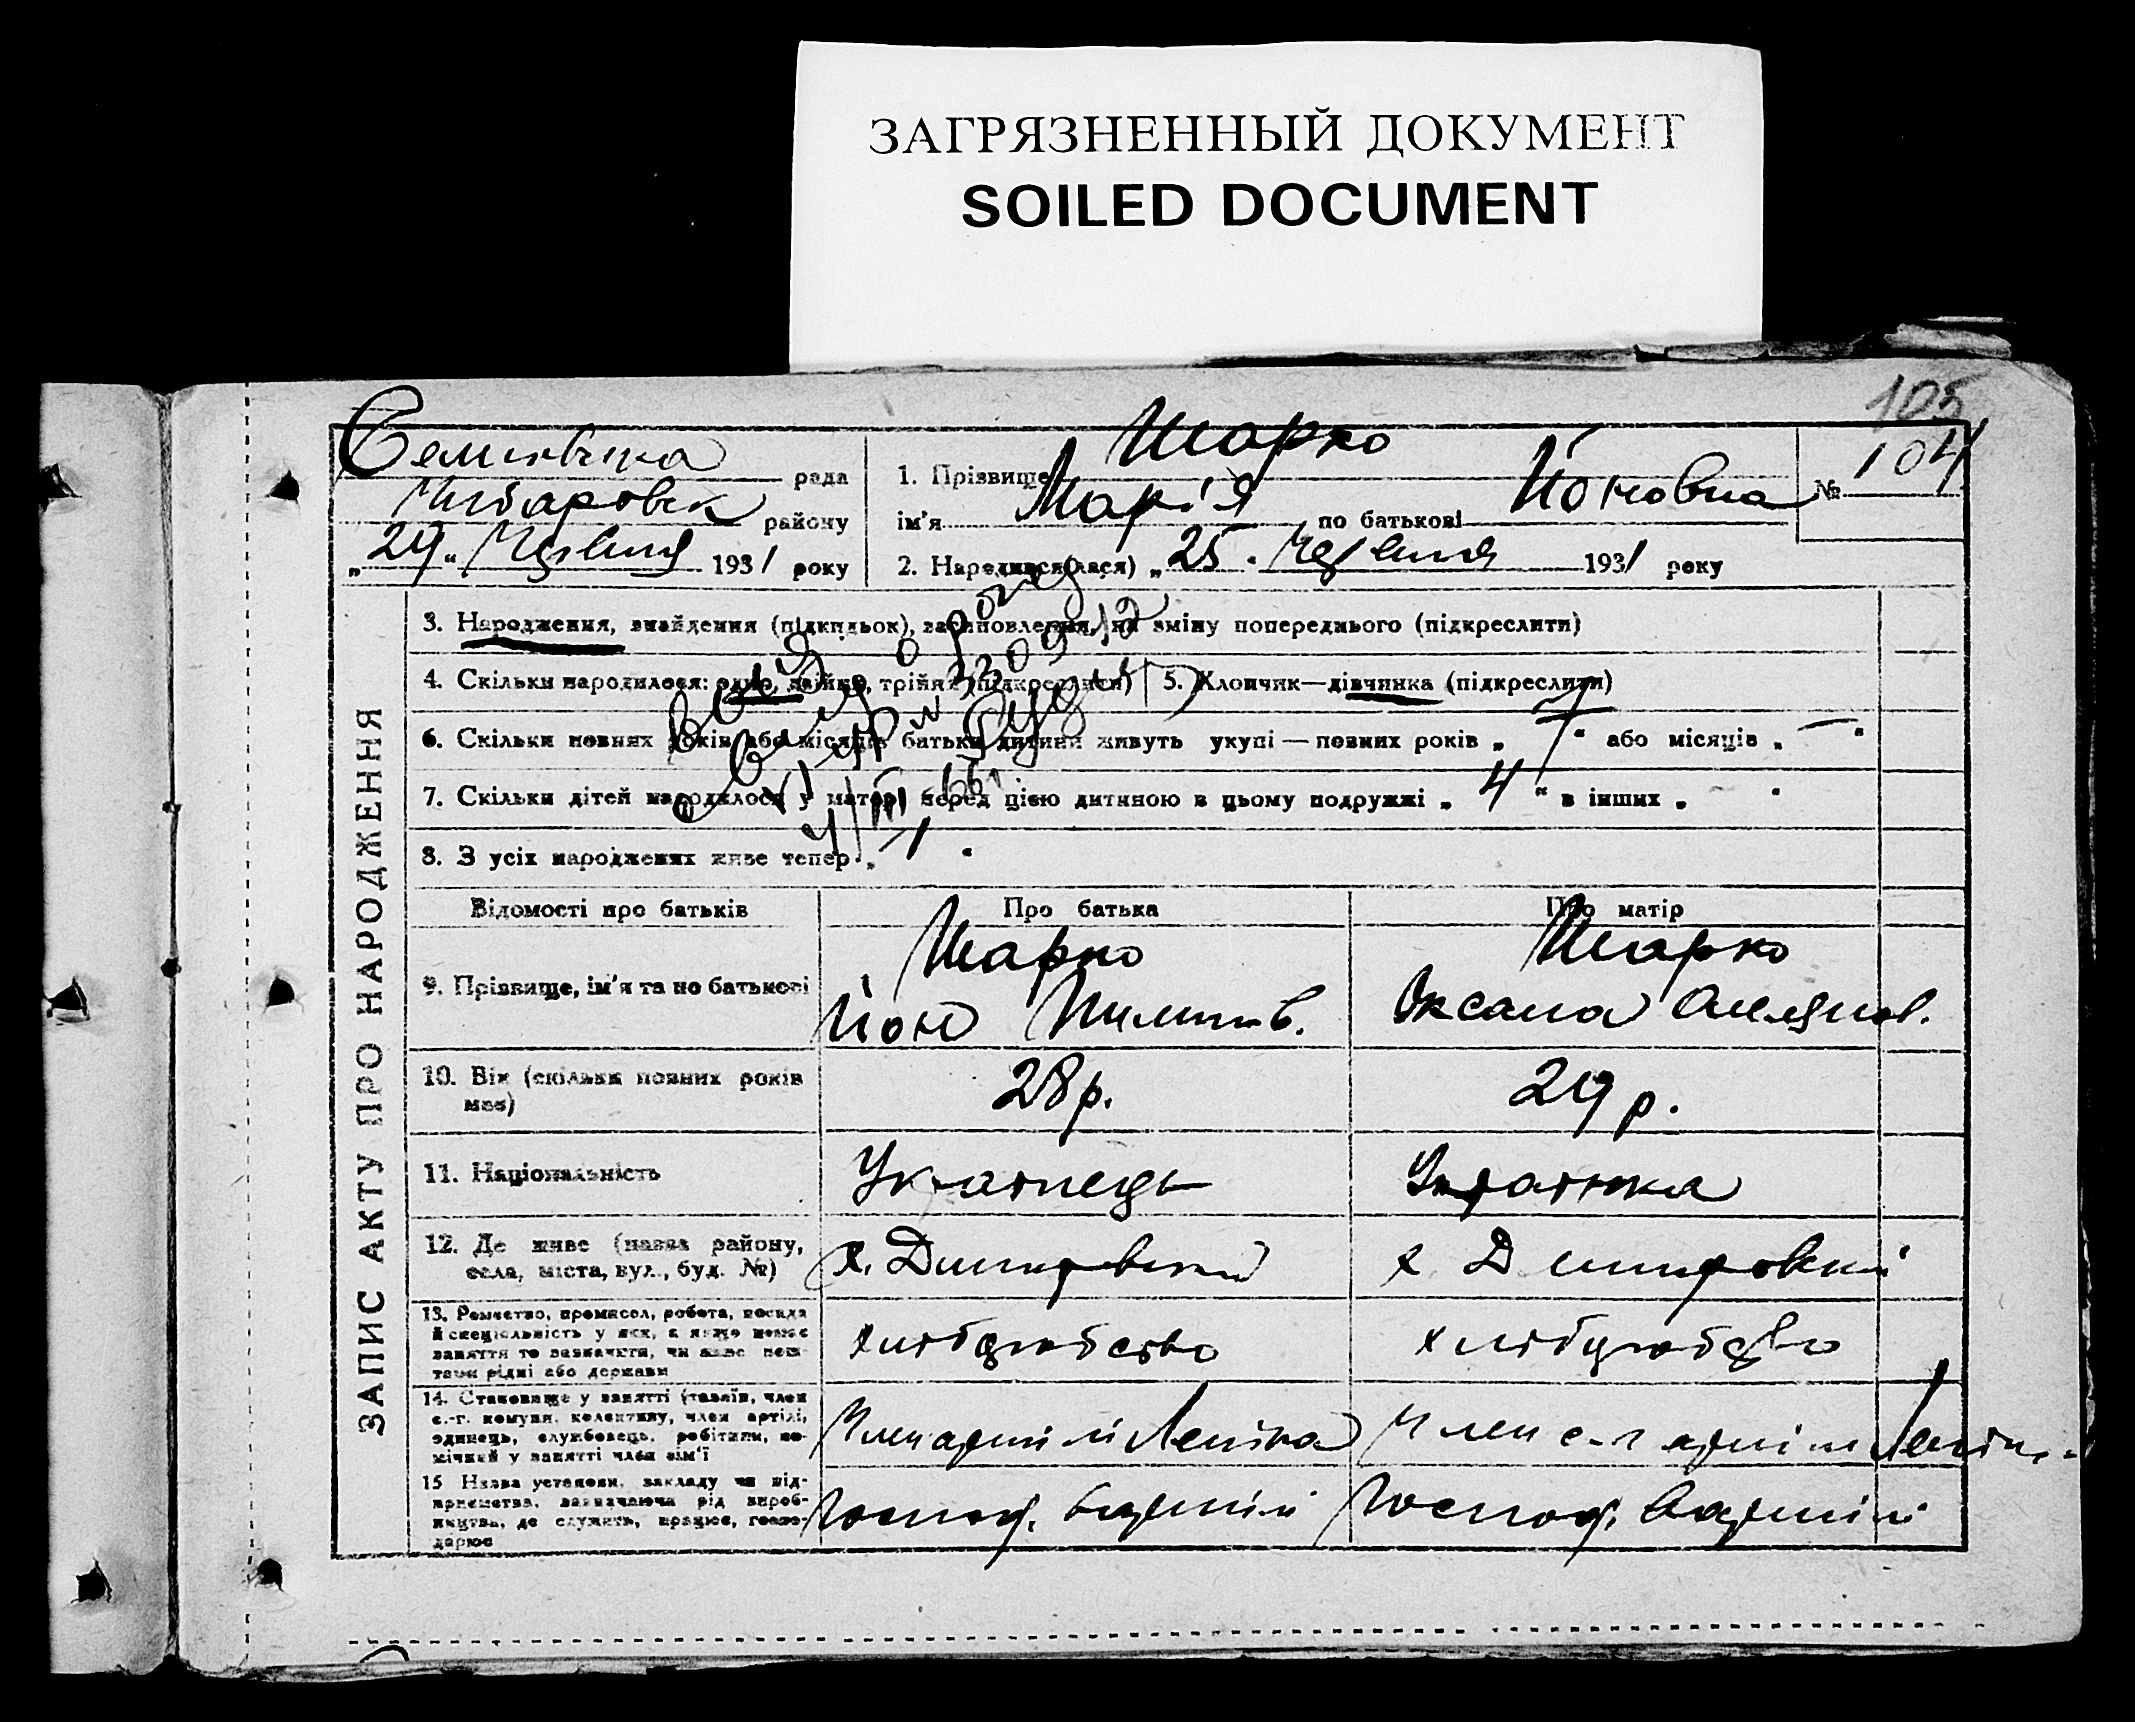 ЗАГРЯЗНЕННЫЙ ДОКУМЕНТ
SOILED DOCUMENT
105
рада
району
„29“ Червня 1931 року
1. Прізвище Шарко
ім'я Марія по батькові Йоновна
№ 104
2. Народився(лася) „25. Червня 1931 року
ЗАПИС АКТУ ПРО НАРОДЖЕННЯ
3. Народження, знайдення (підкидьок), застановлення, на зміну попереднього (підкреслити)
4. Скільки народилося: одно, двійня, трійня (підкреслити) 5. Хлопчик—дівчинка (підкреслити)
6. Скільки повних років або місяців батьки дитини живуть укупі — повних років „ 7 “ або місяців „ — “
7. Скільки дітей народилося у матері перед цією дитиною в цьому подружжі „ 4 “ в інших „
8. З усіх народжених живе тепер „ 1
Відомості про батьків Про батька Про матір
9. Прізвище, ім'я та по батькові
Шарко Шарко
Йон Оксана
10. Вік (скільки повних років має) 28 р. 29 р.
11. Національність Українець Українка
12. Де живе (назва району, села, міста, вул., буд. №)
х. Дмитровський х Дмитровский
13. Ремество, промисел, робота, посада й спеціяльність у них, а якщо немає заняття то зазначити, чи живе коштами рідні або держави
хліборобство хліборобство
14. Становище у занятті (хазяїн, член с.-г. комуни, колективу, член артілі, одинець, службовець, робітник, помічний у занятті член сім'ї
Член артілі Леніна Член с-г артілі Леніна
15 Назва установи, закладу чи підприємства, зазначаючи рід виробництва, де служить, працює, господарює
Господ. в артілі Господ. в артілі